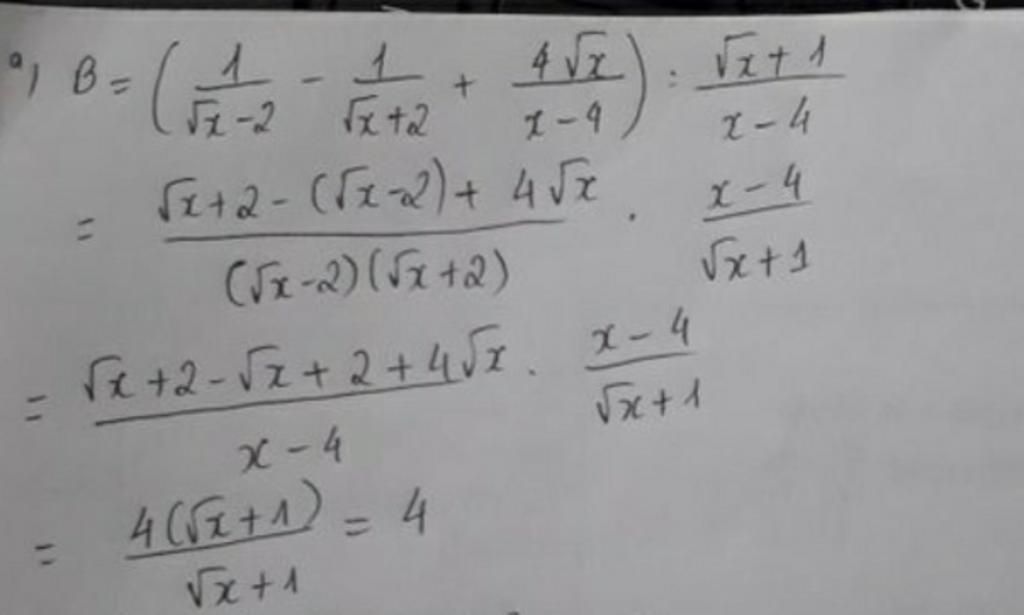 a) B = ( 1/(√x-2) - 1/(√x+2) + 4√x/(x-4) ) : (√x+1)/(x-4)
= (√x+2-(√x-2)+4√x)/((√x-2)(√x+2)) . (x-4)/(√x+1)
= (√x+2-√x+2+4√x)/(x-4) . (x-4)/(√x+1)
= 4(√x+1)/(√x+1) = 4